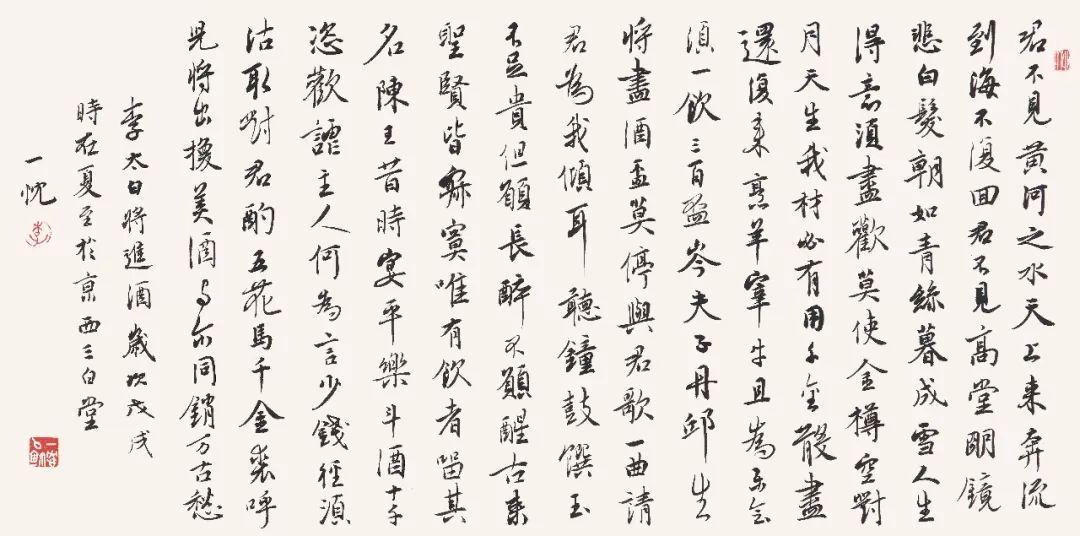 君不見黃河之水天上来奔流
到海不復回君不見高堂明鏡
悲白髮朝如青絲暮成雪人生
得意須盡歡莫使金樽空對
月天生我材必有用千金散盡
還復来烹羊宰牛且為樂會
須一飲三百盃岑夫子丹邱生
將盡酒盃莫停與君歌一曲請
君為我傾耳聽鐘鼓饌玉
不足貴但願長醉不願醒古来
聖賢皆寂寞唯有飲者留其
名陳王昔時宴平樂斗酒十千
恣歡謔主人何為言少錢徑須
沽取對君酌五花馬千金裘呼
兒將出換美酒与尔同銷万古愁
李太白將進酒歲次戊戌
時在夏至於京西三白堂
一忱